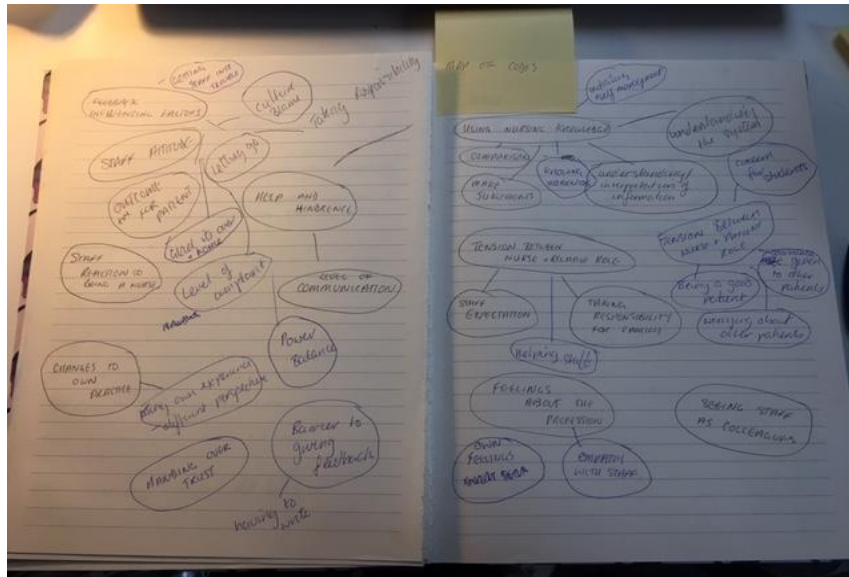 GETTING
STAFF INTO
TROUBLE
FEEDBACK
INFLUENCING FACTORS
Culture
Blame
Taking Responsibility
STAFF ATTITUDE
Letting go
OUTCOME
FOR
PATIENT
HELP AND
HINDRENCE
Glad its over
STAFF
REACTION TO
BEING A NURSE
Level of
complaint
LEVEL OF
COMMUNICATION
Power
Balance
CHANGES TO
OWN
PRACTICE
own experience
different perspective
Barrier to
giving
feedback
HANDING OVER
TRUST
having to
write
MAP OF CODES
self management
USING NURSING KNOWLEDGE
understanding
the system
COMPARISON
MAKE
JUDGEMENTS
understanding/
interpretation of
information
concern
for
students
TENSION BETWEEN
NURSE + RELATIVE ROLE
TENSION BETWEEN
NURSE + PATIENT
ROLE
given
to other
patients
Being a good
patient
worrying about
other patients
STAFF
EXPECTATION
TAKING
RESPONSIBILITY
FOR
Helping staff
FEELINGS
ABOUT THE
PROFESSION
SEEING STAFF
AS COLLEAGUES
OWN
FEELINGS
EMPATHY
WITH STAFF